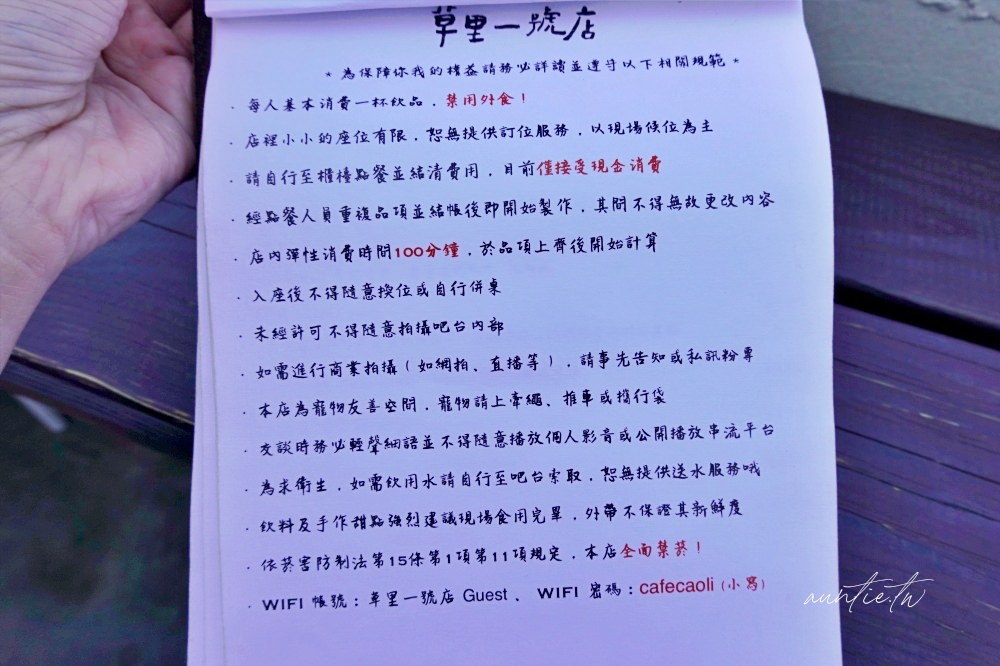 草里一號店
* 為保障你我的權益請務必詳讀並遵守以下相關規範 *
· 每人基本消費一杯飲品，禁用外食！
· 店裡小小的座位有限，恕無提供訂位服務，以現場候位為主
· 請自行至櫃檯點餐並結清費用，目前僅接受現金消費
· 經點餐人員重複品項並結帳後即開始製作，其間不得無故更改內容
· 店內彈性消費時間100分鐘，於品項上齊後開始計算
· 入座後不得隨意換位或自行併桌
· 未經許可不得隨意拍攝吧台內部
· 如需進行商業拍攝（如網拍、直播等），請事先告知或私訊粉專
· 本店為寵物友善空間，寵物請上牽繩、推車或攜行袋
· 交談時務必輕聲細語並不得隨意播放個人影音或公開播放串流平台
· 為求衛生，如需飲用水請自行至吧台索取，恕無提供送水服務哦
· 飲料及手作甜點強烈建議現場食用完畢，外帶不保證其新鮮度
· 依菸害防制法第15條第1項第11項規定，本店全面禁菸！
· WIFI 帳號：草里一號店 Guest、 WIFI 密碼：cafecaoli（小寫）
auntie.tw